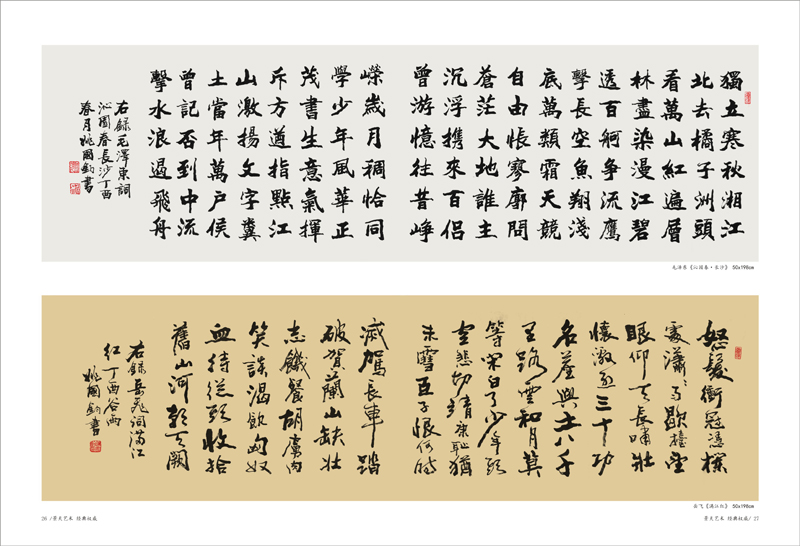 獨立寒秋湘江
北去橘子洲頭
看萬山紅遍層
林盡染漫江碧
透百舸争流鷹
擊長空魚翔淺
底萬類霜天競
自由悵寥廓問
蒼茫大地誰主
沉浮携來百侣
曾游憶往昔峥
嶸歲月稠恰同
學少年風華正
茂書生意氣揮
斥方遒指點江
山激揚文字糞
土當年萬户侯
曾記否到中流
擊水浪遏飛舟
右録毛澤東詞
沁園春長沙丁酉
春月姚國鈞書
毛泽东《沁园春·长沙》 50x198cm
怒髮衝冠憑欄
處瀟瀟雨歇擡望
眼仰天長嘯壯
懷激烈三十功
名塵與土八千
里路雲和月莫
等閑白了少年頭
空悲切靖康耻猶
未雪臣子恨何時
滅駕長車踏
破賀蘭山缺壯
志饑餐胡虜肉
笑談渴飲匈奴
血待從頭收拾
舊山河朝天闕
右録岳飛詞滿江
紅丁酉谷雨
姚國鈞書
岳飞《满江红》 50x198cm
26 /景天艺术 经典权威
景天艺术 经典权威/ 27